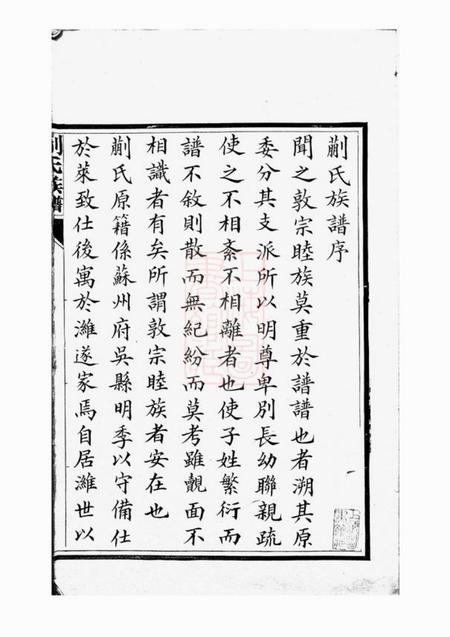 蒯氏族譜序
聞之敦宗睦族莫重於譜譜也者溯其原
委分其支派所以明尊卑別長幼聯親疏
使之不相紊不相離者也使子姓繁衍而
譜不敘則散而無紀紛而莫考雖覿面不
相識者有矣所謂敦宗睦族者安在也
蒯氏原籍係蘇州府吳縣明季以守備仕
於萊致仕後寓於濰遂家焉自居濰世以
蒯氏族譜